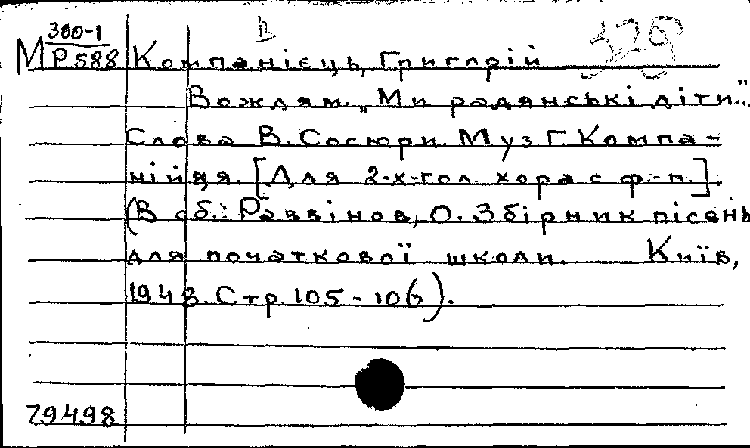 300-1
М Р588 Компанієць, Григорій
329
Вождям. „Ми радянські діти".
Слова В. Сосюри. Муз Г. Компа-
нійця. [Для 2-х-гол. хора с ф.-п.].
(В сб.: Раввінов, О. Збірник пісень
для початкової школи. Київ,
1948. Стр. 105-106).
79498